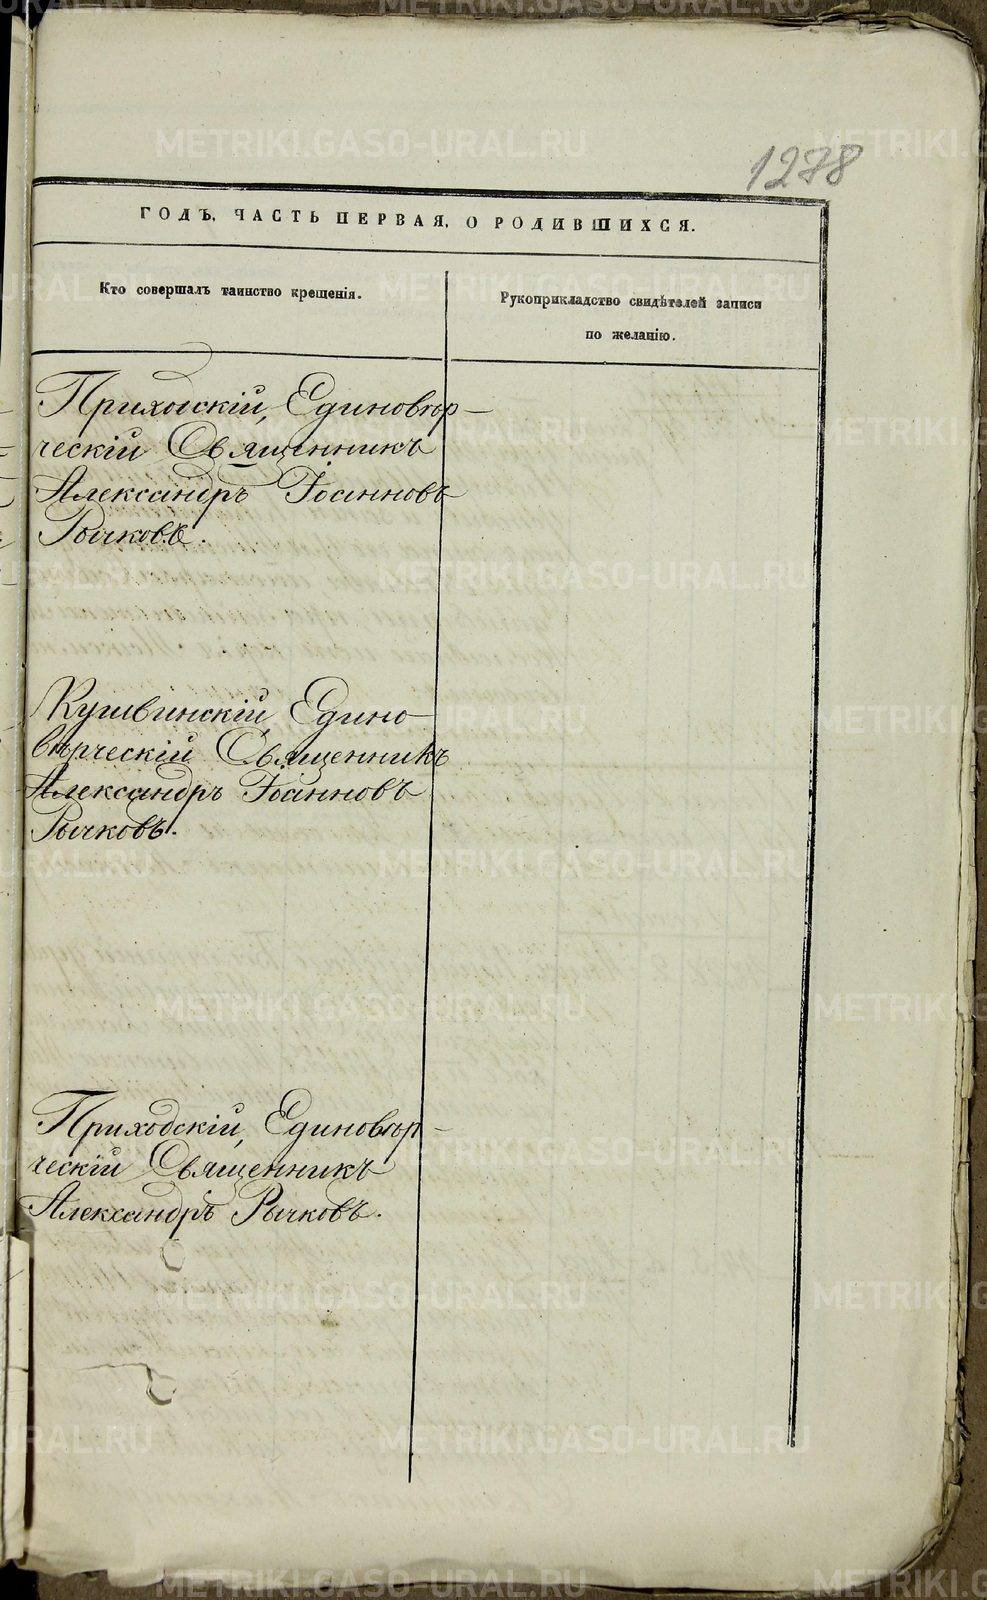 1278
ГОДЪ, ЧАСТЬ ПЕРВАЯ, О РОДИВШИХСЯ.
Кто совершалъ таинство крещенія.
Рукоприкладство свидѣтелей записи
по желанію.
Приходскій, Единовѣр-
ческій Священникъ
Александръ Іоанновъ
Рычковъ.
Кушвинскій Едино-
вѣрческій Священникъ
Александръ Іоанновъ
Рычковъ.
Приходскій, Единовѣр-
ческій Священникъ
Александръ Рычковъ.
METRIKI.GASO-URAL.RU